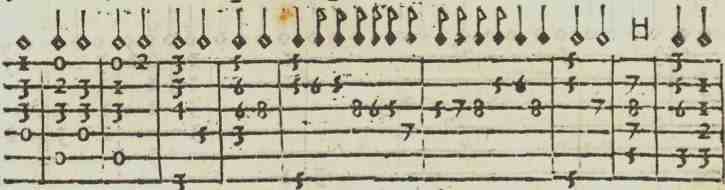 1 0 0 2 3 5 5 5 3
3 2 3 1 3 6 5 6 5 5 6 5 7 5 1
3 3 3 3 4 6 8 8 6 5 5 7 8 8 7 8 6 1
0 0 5 3 7 7 2
0 0 5 3 3
3 5 5